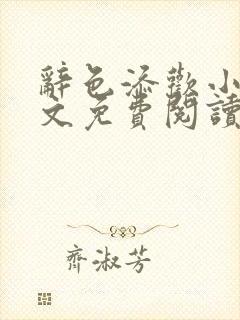 辭色添歡小
文免費閱讀
齊淑芳